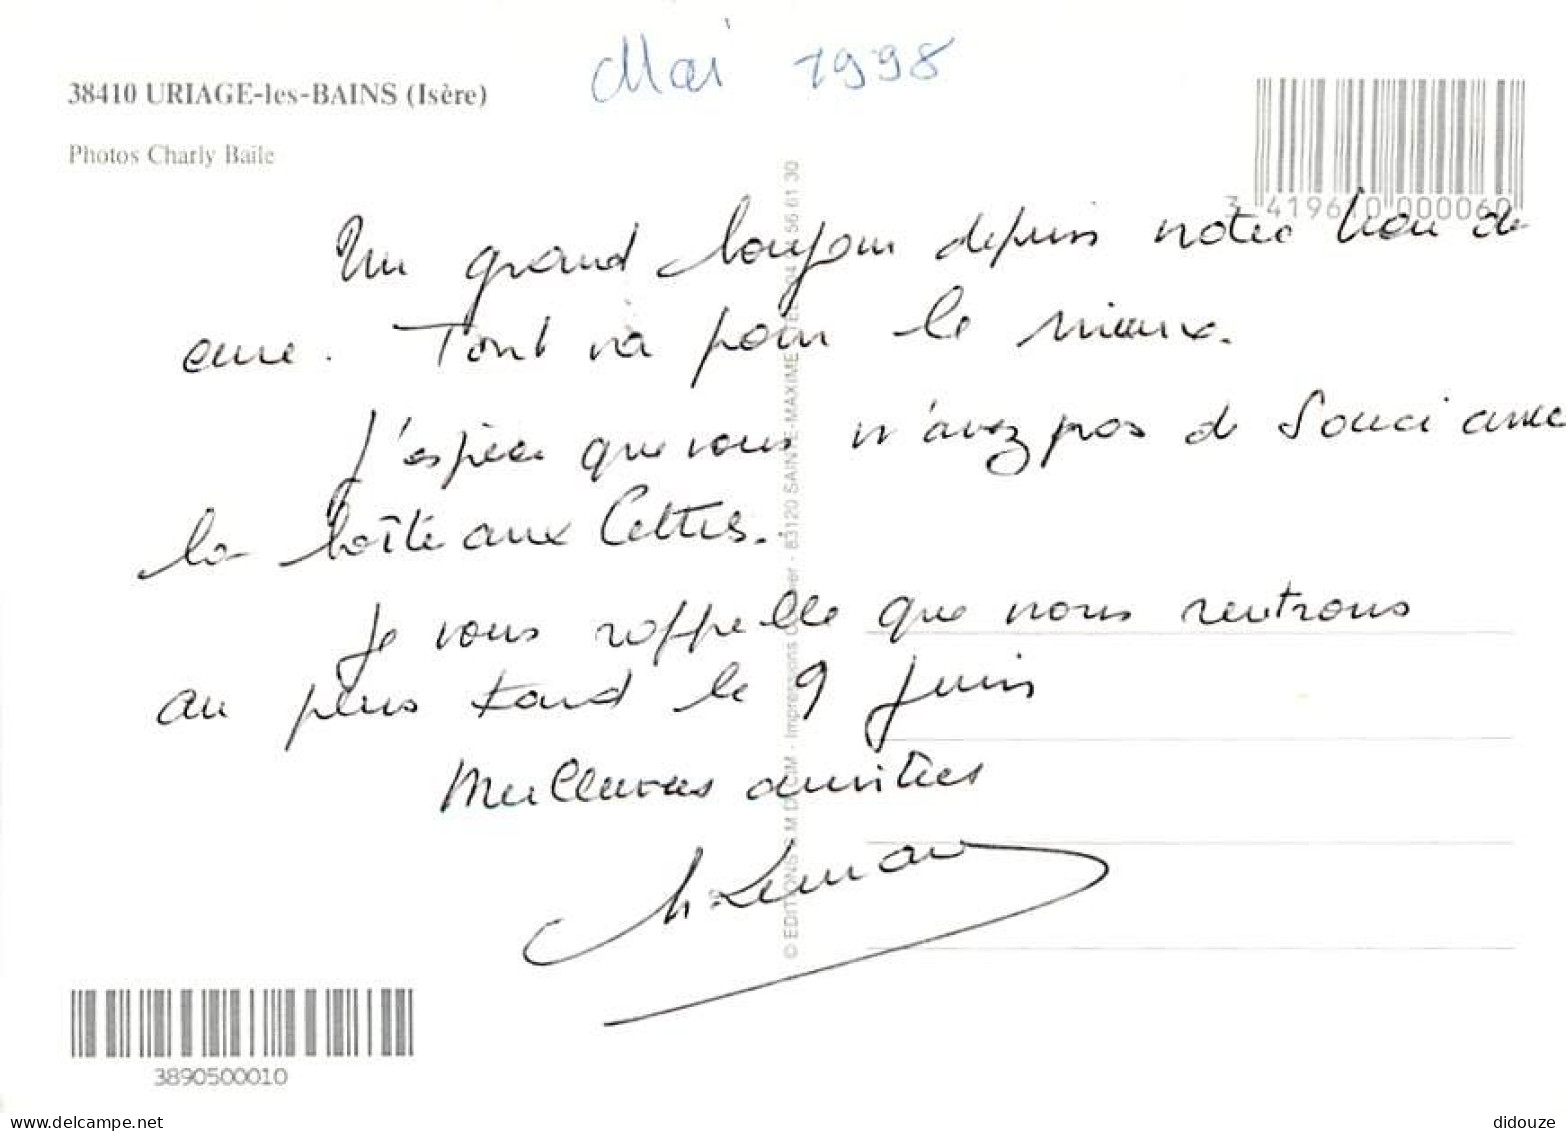 Mai 1998
38410 URIAGE-les-BAINS (Isère)
Photos Charly Baile
3 419610 000060
Un grand bonjour depuis notre lieu de
cure. Tout va pour le mieux.
J'espère que vous n'avez pas de souci avec
la boîte aux lettres.
Je vous rappelle que nous rentrons
au plus tard le 9 juin
Meilleures amitiés
© EDITIONS
DICIM - Impressions
- 83120 SAINTE-MAXIME
56 61 30
3890500010
delcampe.net
didouze